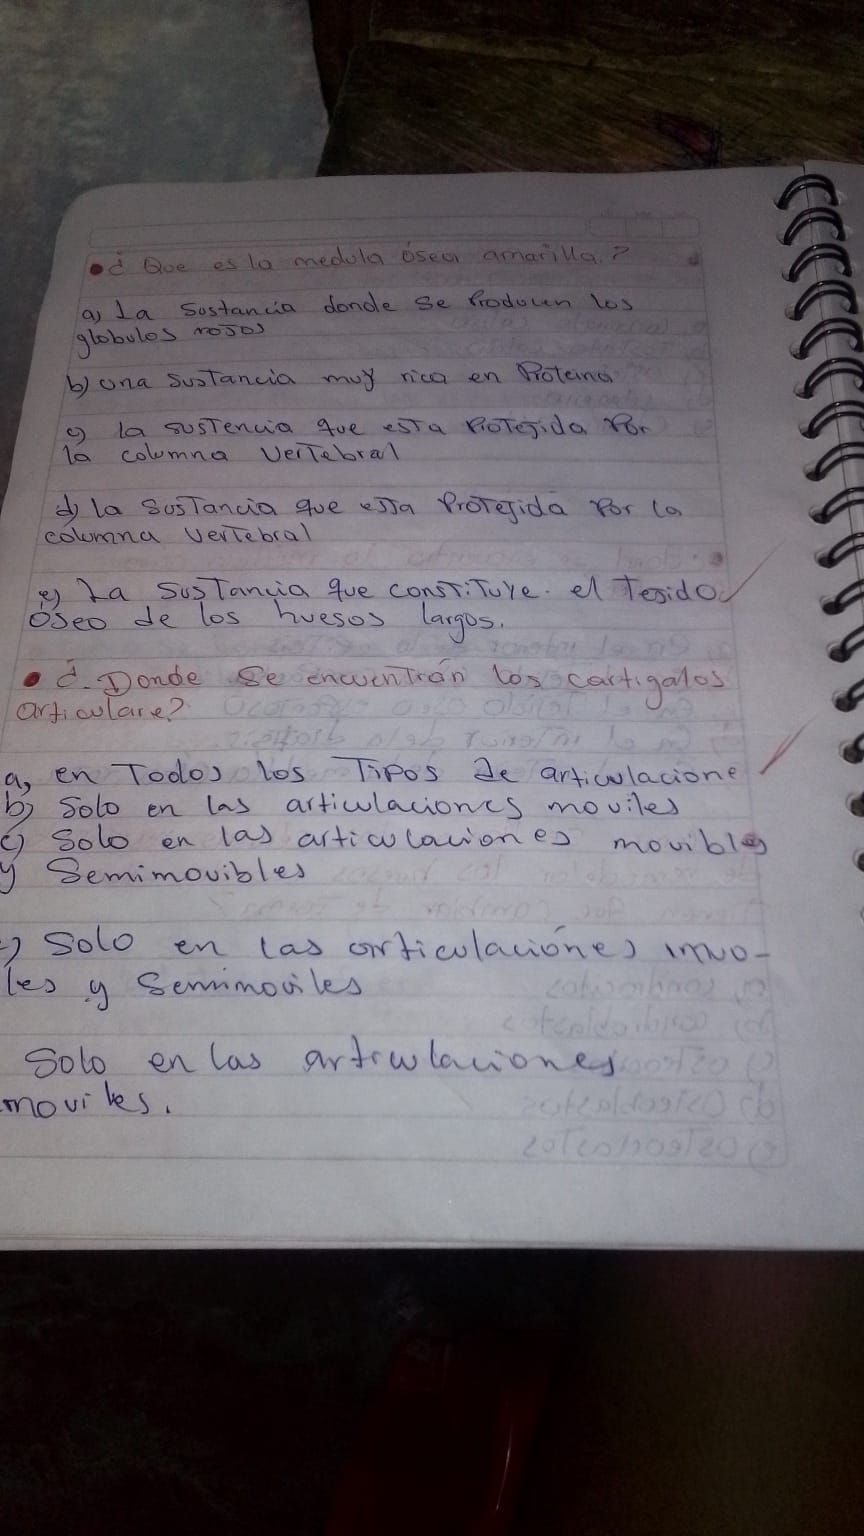 • ¿ Que es la medula ósea amarilla.?
a) La Sustancia donde se Producen los
globulos rojos
b) una sustancia muy rica en Proteina
c) la sustencia que esta Protejida Por
la columna Vertebral
d) la Sustancia que esta Protejida Por la
columna Vertebral
e) La Sustancia que constituye. el Tejido
óseo de los huesos largos.
• ¿. Donde se encuentran los cartigalos
articulare?
a, en Todos los Tipos de articulacione
b) Solo en las articulaciones moviles
c) Solo en las articulaciones movibles
y Semimovibles
) Solo en las articulaciónes inmo-
les y Semimoviles
Solo en las articulaciones
moviles.